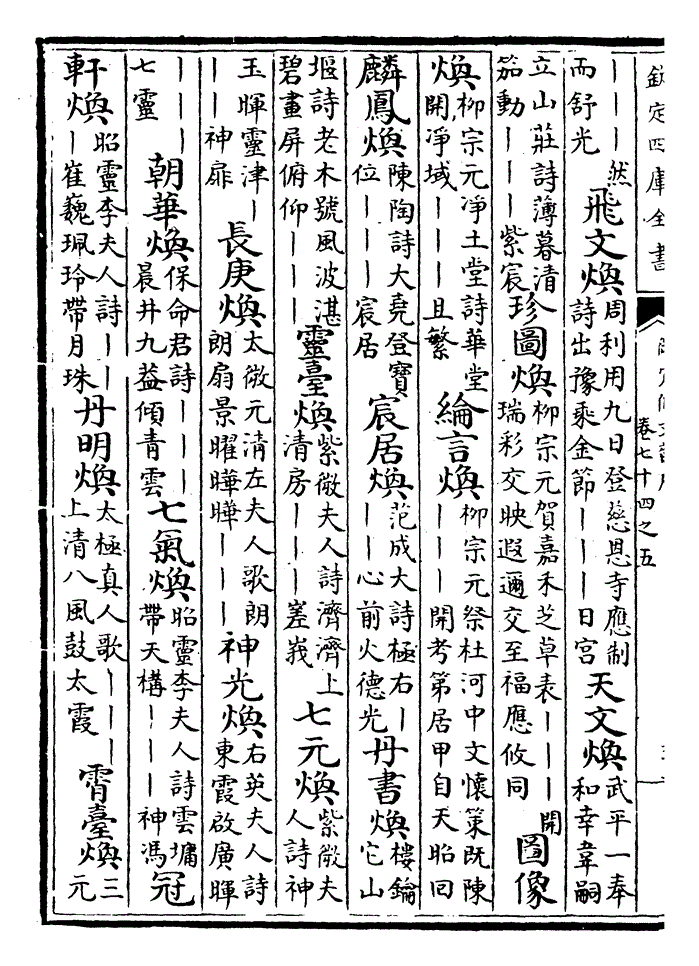 欽定四庫全書
卷七十四之五
｜｜｜然
而舒光
飛文煥
周利用九日登慈恩寺應制
詩出豫乘金節｜｜｜日宮
天文煥
武平一奉
和幸韋嗣
立山莊詩薄暮清
笳動｜｜｜紫宸
珍圖煥
柳宗元賀嘉禾芝草表｜｜｜開
瑞彩交映遐邇交至福應攸同
圖像
煥
柳宗元淨土堂詩華堂
開淨域｜｜｜且繁
綸言煥
柳宗元祭杜河中文懷策既陳
｜｜｜開考第居甲自天昭回
麟鳳煥
陳陶詩大堯登寶
位｜｜｜宸居
宸居煥
范成大詩極右｜
｜｜心前火德光
丹書煥
樓鑰
它山
堰詩老木號風波湛
碧畫屏俯仰｜｜｜
靈臺煥
紫微夫人詩濟濟上
清房｜｜｜差峩
七元煥
紫微夫
人詩神
玉暉靈津｜
｜｜神扉
長庚煥
太微元清左夫人歌朗
朗扇景曜曄曄｜｜｜
神光煥
右英夫人詩
東霞啟廣暉
｜｜｜
七靈
朝華煥
保命君詩｜｜｜
晨井九蓋傾青雲
七氣煥
昭靈李夫人詩雲墉
帶天構｜｜｜神馮
冠
軒煥
昭靈李夫人詩｜｜
｜崔巍珮玲帶月珠
丹明煥
太極真人歌｜｜｜
上清八風鼓太霞
霄臺煥
三
元